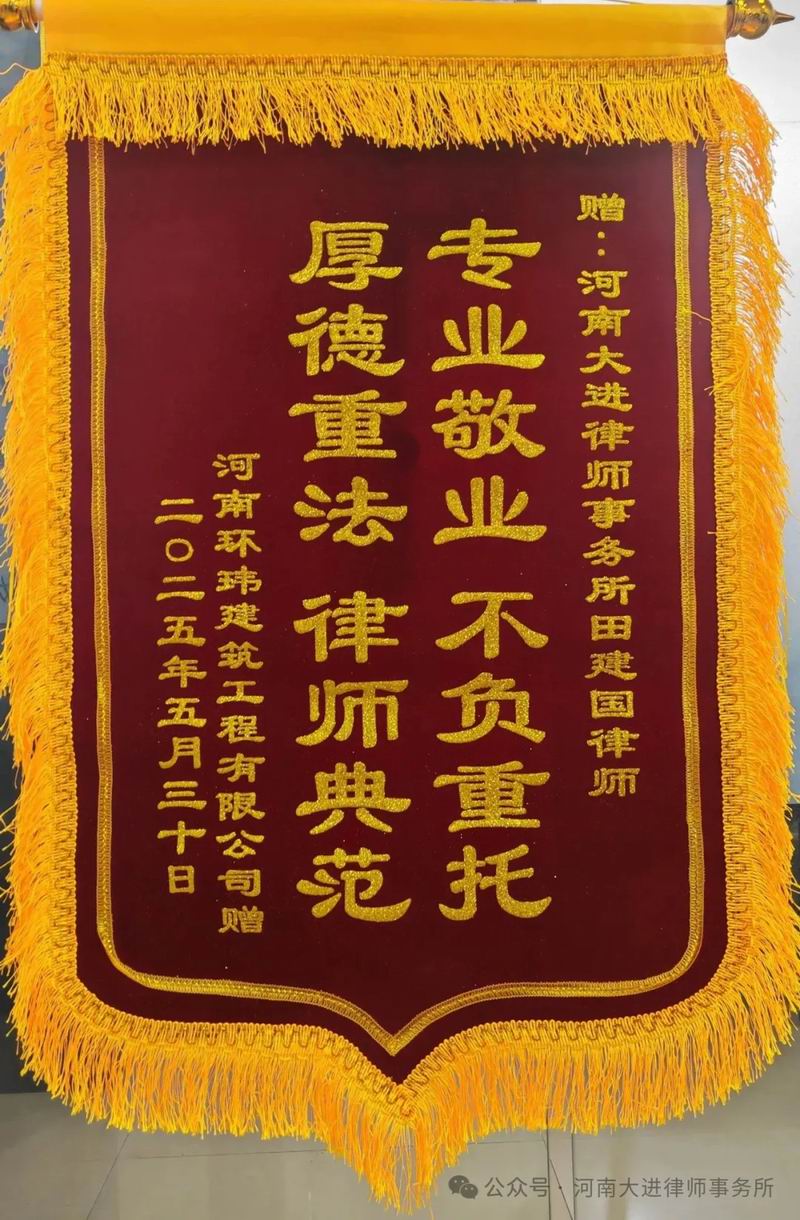 赠：河南大进律师事务所田建国律师
专业敬业 不负重托
厚德重法 律师典范
河南环玮建筑工程有限公司赠
二〇二五年五月三十日
公众号·河南大进律师事务所